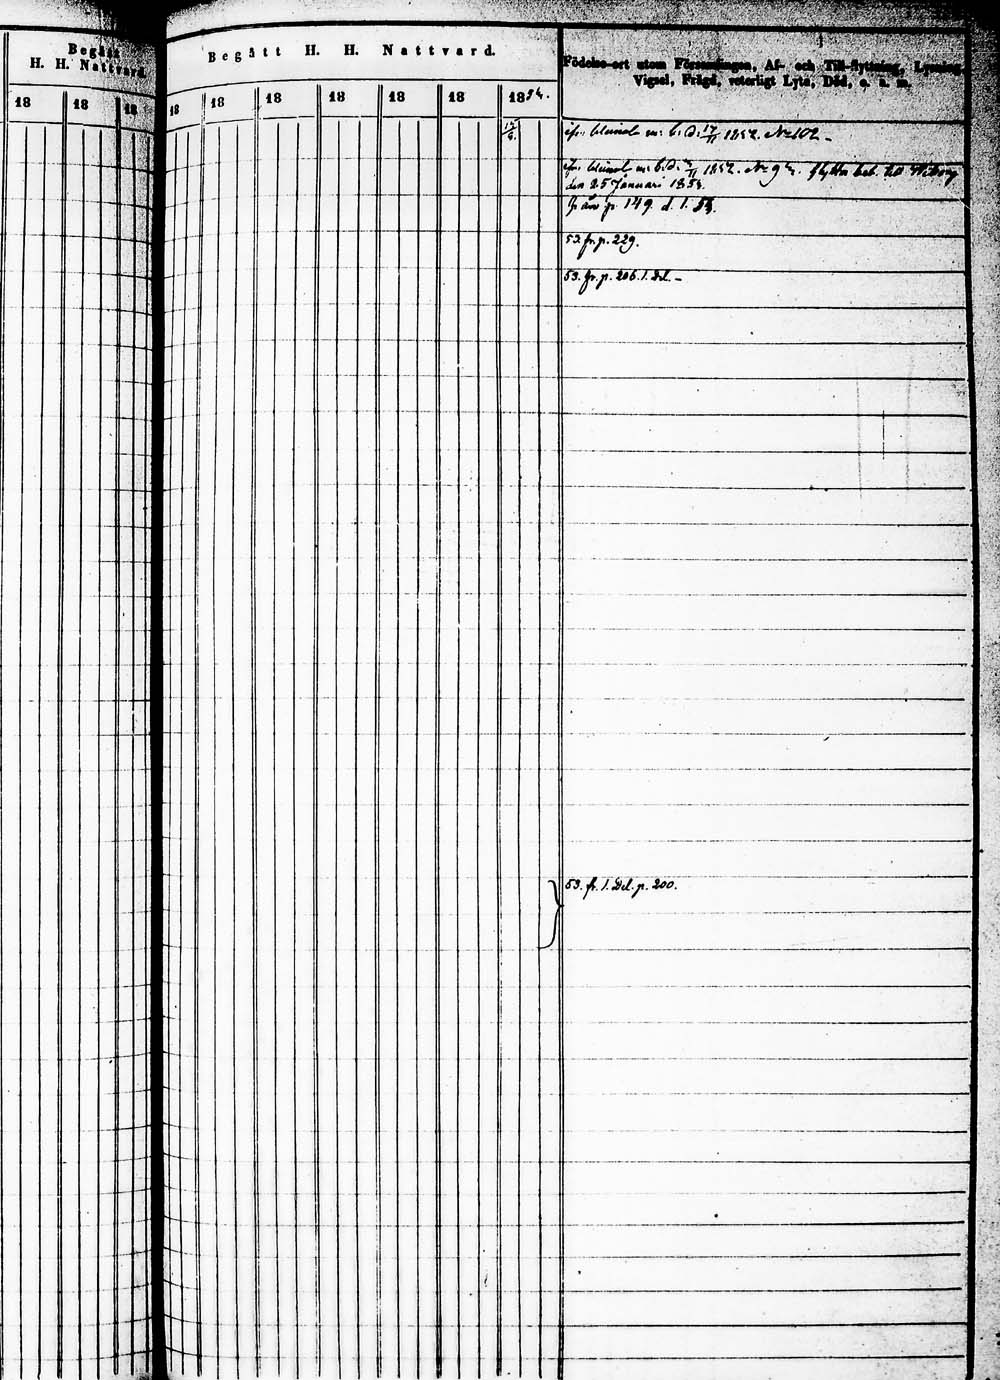 Begått
H. H. Nattvard.
18 18 18
Begått H. H. Nattvard.
18 18 18 18 18 18 1854.
Födelse-ort utom Församlingen, Af- och Till-flyttning, Lysning,
Vigsel, Frägd, veterligt Lyte, Död, o. s. m.
m: b: d: 17/11 1852. No 102 –
m: b: d: /11 1852. No 94. flytta bet. till Wiborg
den 25 Januari 1853.
fr p. 149. d. 1. 53.
53. fr. p. 229.
53. fr. p. 206. 1. Del. –
53. fr. 1. Del. p. 200.